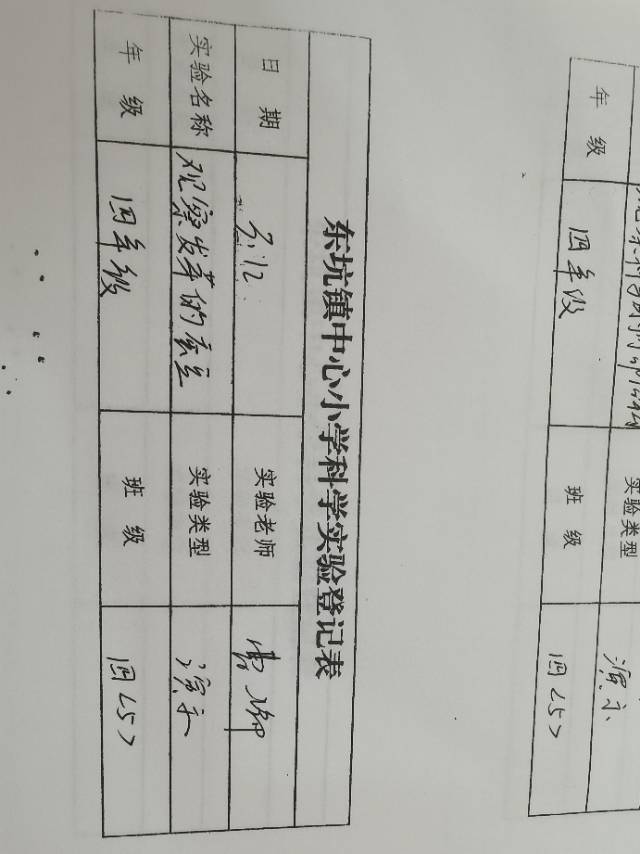 东坑镇中心小学科学实验登记表
日 期 3.12 实验老师
实验名称 观察发芽的蚕豆 实验类型 演示
年 级 四年级 班 级 四<5>
实验类型 演示
年 级 四年级 班 级 四<5>